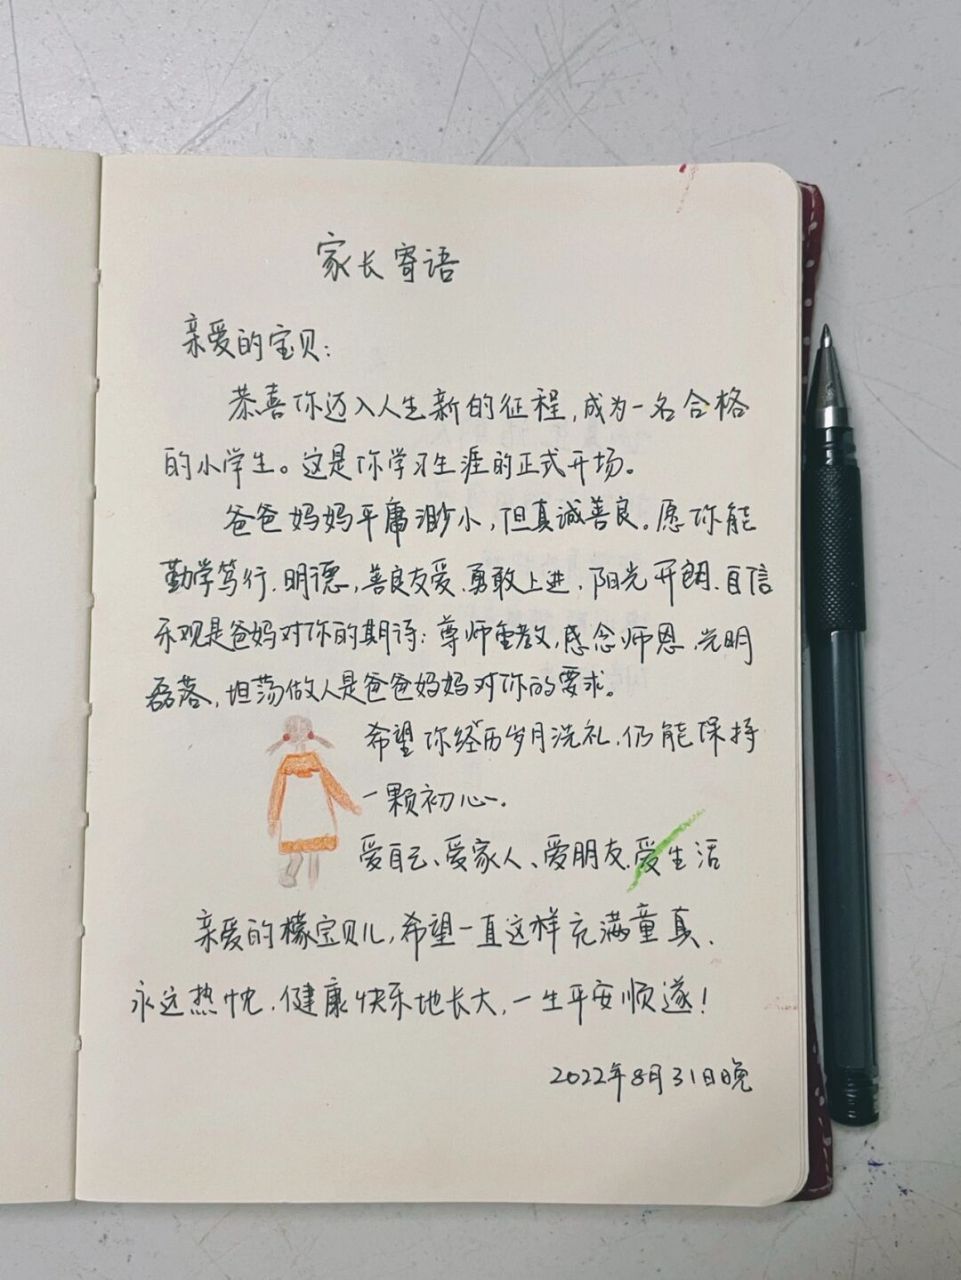 家长寄语
亲爱的宝贝:
恭喜你迈入人生新的征程,成为一名合格
的小学生。这是你学习生涯的正式开场。
爸爸妈妈平庸渺小,但真诚善良。愿你能
勤学笃行、明德,善良友爱、勇敢上进,阳光开朗、自信
乐观是爸妈对你的期待;尊师重教,感念师恩、光明
磊落,坦荡做人是爸爸妈妈对你的要求。
希望你经历岁月洗礼,仍能保持
一颗初心。
爱自己、爱家人、爱朋友、爱生活
亲爱的檬宝贝儿,希望一直这样充满童真、
永远热忱,健康快乐地长大,一生平安顺遂!
2022年8月31日晚